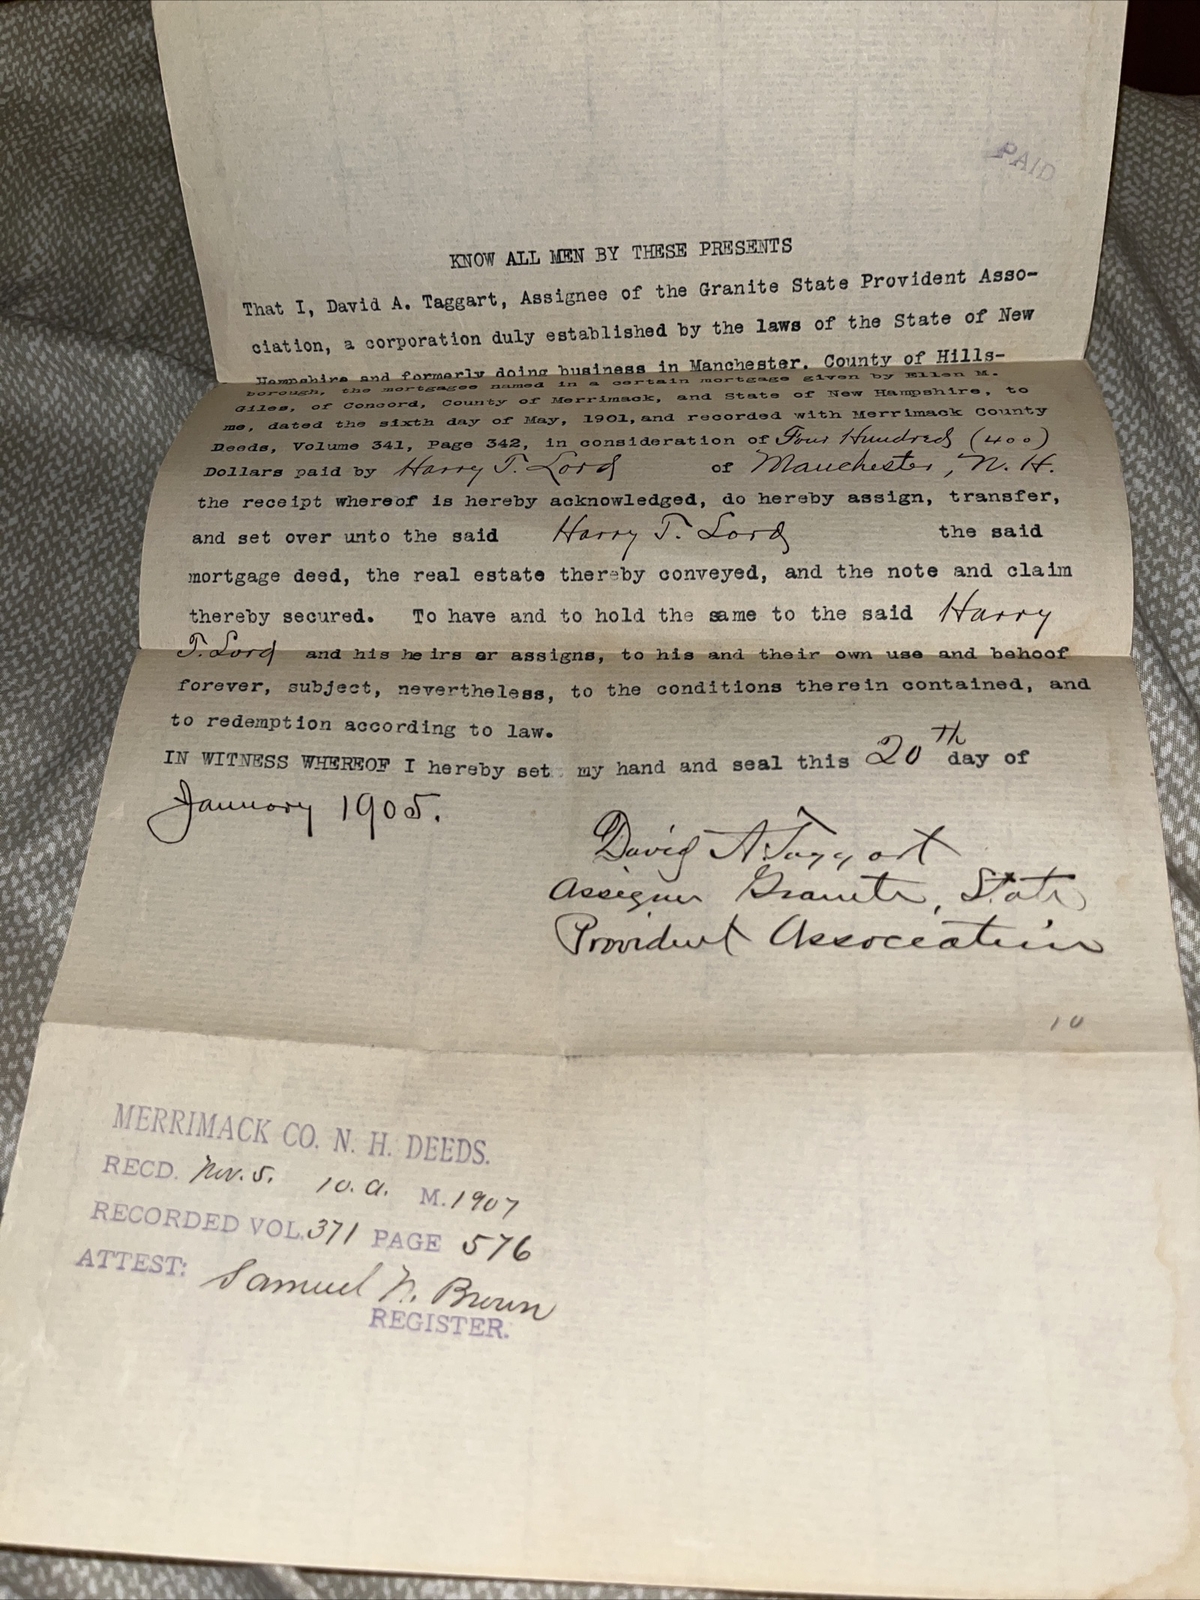 PAID
KNOW ALL MEN BY THESE PRESENTS
That I, David A. Taggart, Assignee of the Granite State Provident Asso-
ciation, a corporation duly established by the laws of the State of New
Hampshire and formerly doing business in Manchester, County of Hills-
borough, the mortgagee named in a certain mortgage given by Ellen M.
Giles, of Concord, County of Merrimack, and State of New Hampshire, to
me, dated the sixth day of May, 1901, and recorded with Merrimack County
Deeds, Volume 341, Page 342, in consideration of Four Hundred (400)
Dollars paid by Harry T. Lord of Manchester, N. H.
the receipt whereof is hereby acknowledged, do hereby assign, transfer,
and set over unto the said Harry T. Lord the said
mortgage deed, the real estate thereby conveyed, and the note and claim
thereby secured. To have and to hold the same to the said Harry
T. Lord and his heirs or assigns, to his and their own use and behoof
forever, subject, nevertheless, to the conditions therein contained, and
to redemption according to law.
IN WITNESS WHEREOF I hereby set my hand and seal this 20th day of
January 1905.
David A. Taggart
Assignee Granite State
Provident Association
10
MERRIMACK CO. N. H. DEEDS.
RECD. Nov. 5. 10. A. M. 1907
RECORDED VOL. 371 PAGE 576
ATTEST: Samuel N. Brown
REGISTER.